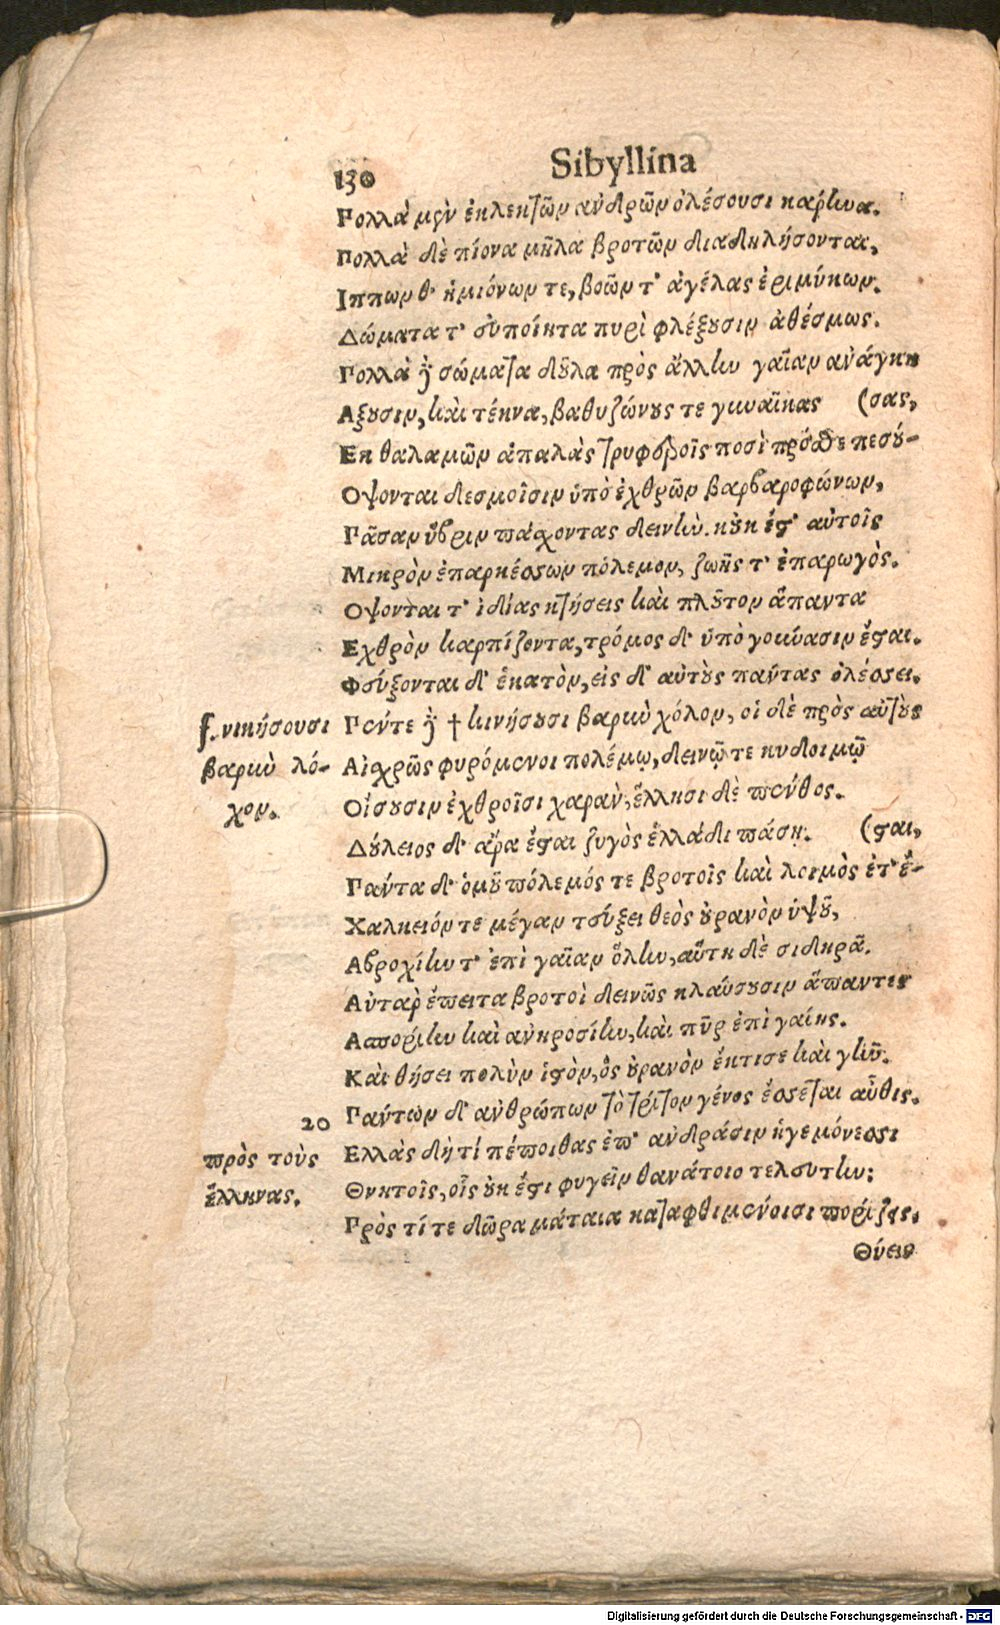 130 Sibyllina
Πολλὰ μὲν ἐκλεκτῶν ἀνδρῶν ὀλέσουσι κάρηνα.
Πολλὰ δὲ πίονα μῆλα βροτῶν διαδηλήσονται,
Ιππων θ' ἡμιόνων τε, βοῶν τ' ἀγέλας ἐριμύκων.
Δώματα τ' εὐποίητα πυρὶ φλέξουσιν ἀθέσμως.
Πολλὰ δὲ σώματα δοῦλα πρὸς ἄλλην γαῖαν ἀνάγκη
Αξουσιν, καὶ τέκνα, βαθυζώνους τε γυναῖκας (σας,
Εκ θαλαμῶν ἁπαλὰς τρυφεροῖς ποσὶ πρόσθε πεσού-
Οψονται δεσμοῖσιν ὑπὸ ἐχθρῶν βαρβαροφώνων,
Πᾶσαν ὕβριν πάσχοντας δεινὴν. κοὐκ ἔστ' αὐτοῖς
Μικρὸν ἐπαρκέσσων πόλεμον, ζωῆς τ' ἐπαρωγὸς.
Οψονται τ' ἰδίας κτήσεις καὶ πλοῦτον ἅπαντα
Εχθρὸν καρπίζοντα, τρόμος δ' ὑπὸ γούνασιν ἔσται.
Φεύξονται δ' ἑκατὸν, εἷς δ' αὐτοὺς πάντας ὀλέσσει.
f. νικήσουσι
βαρὺν λό-
χον.
Πέντε δὲ † κινήσουσι βαρὺν χόλον, οἱ δὲ πρὸς αὐτοὺς
Αἰσχρῶς φυρόμενοι πολέμῳ, δεινῷ τε κυδοιμῷ
Οἴσουσιν ἐχθροῖσι χαρὰν, ἕλλησι δὲ πένθος.
Δούλειος δ' ἄρα ἔσται ζυγὸς ἑλλάδι πάσῃ. (σται,
Πάντα δ' ὁμοῦ πόλεμός τε βροτοῖς καὶ λοιμὸς ἔτ' ἔ-
Χαλκειόν τε μέγαν τεύξει θεὸς οὐρανὸν ὑψοῦ,
Αβροχίην τ' ἐπὶ γαῖαν ὅλην, αὕτη δὲ σιδηρᾶ.
Αὐτὰρ ἔπειτα βροτοὶ δεινῶς κλαύσουσιν ἅπαντες
Ασπορίην καὶ ἀνηροσίην, καὶ πῦρ ἐπὶ γαίης.
Καὶ θήσει πολὺν ἱστὸν, ὃς οὐρανὸν ἔκτισε καὶ γῆν.
Πάντων δ' ἀνθρώπων τὸ τρίτον γένος ἔσσεται αὖθις.
20
πρὸς τοὺς
ἕλληνας.
Ελλὰς δὴ τί πέποιθας ἐπ' ἀνδράσιν ἡγεμόνεσσι
Θνητοῖς, οἷς οὐκ ἔστι φυγεῖν θανάτοιο τελευτὴν;
Πρὸς τί τε δῶρα μάταια καταφθιμένοισι πορίζεις.
Θύεις
Digitalisierung gefördert durch die Deutsche Forschungsgemeinschaft - DFG